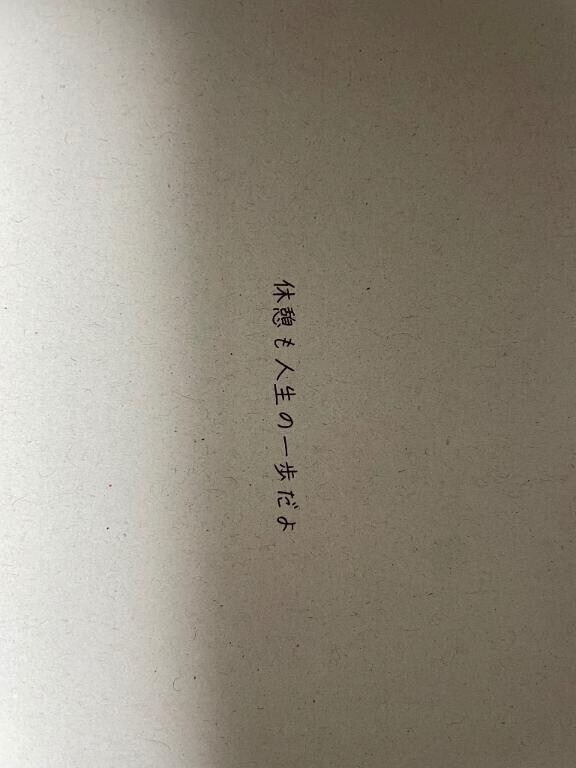 休憩も人生の一歩だよ